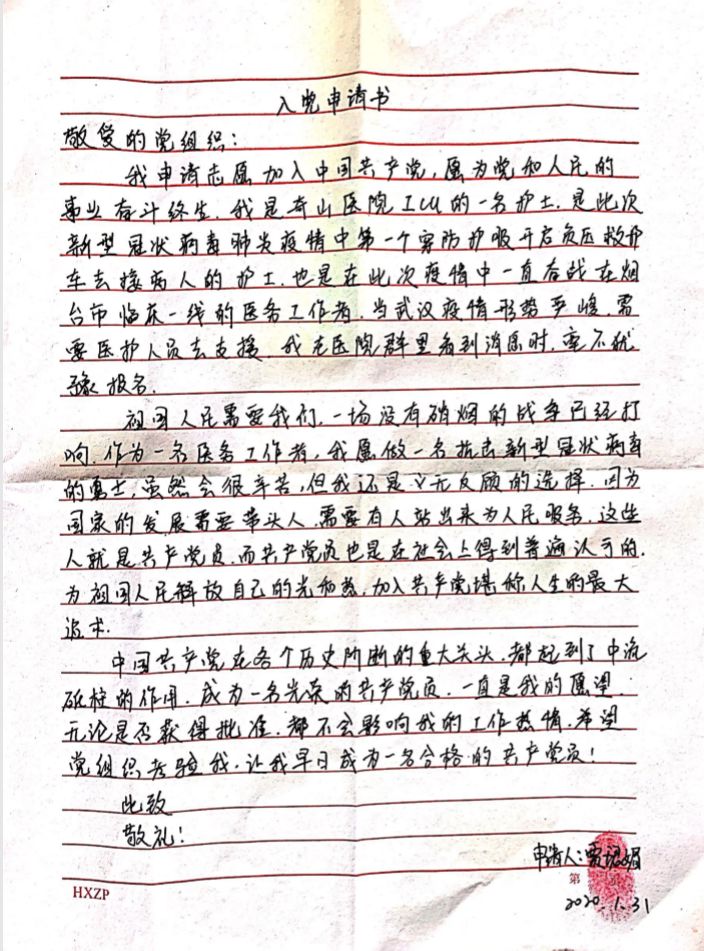 入党申请书
敬爱的党组织：
我申请志愿加入中国共产党，愿为党和人民的
事业奋斗终生。我是奇山医院ICU的一名护士，是此次
新型冠状病毒肺炎疫情中第一个穿防护服开启负压救护
车去接病人的护士，也是在此次疫情中一直奋战在烟
台市临床一线的医务工作者，当武汉疫情形势严峻，需
要医护人员去支援，我在医院群里看到消息时，毫不犹
豫报名。
祖国人民需要我们，一场没有硝烟的战争已经打
响，作为一名医务工作者，我愿做一名抗击新型冠状病毒
的勇士，虽然会很辛苦，但我还是义无反顾的选择，因为
国家的发展需要带头人，需要有人站出来为人民服务，这些
人就是共产党员，而共产党员也是在社会上得到普遍认可的，
为祖国人民释放自己的光和热，加入共产党堪称人生的最大
追求。
中国共产党在各个历史阶断的重大关头，都起到了中流
砥柱的作用，成为一名光荣的共产党员，一直是我的愿望，
无论是否获得批准，都不会影响我的工作热情，希望
党组织考验我，让我早日成为一名合格的共产党员！
此致
敬礼！
申请人：贾 娟
第 页
2020.1.31
HXZP